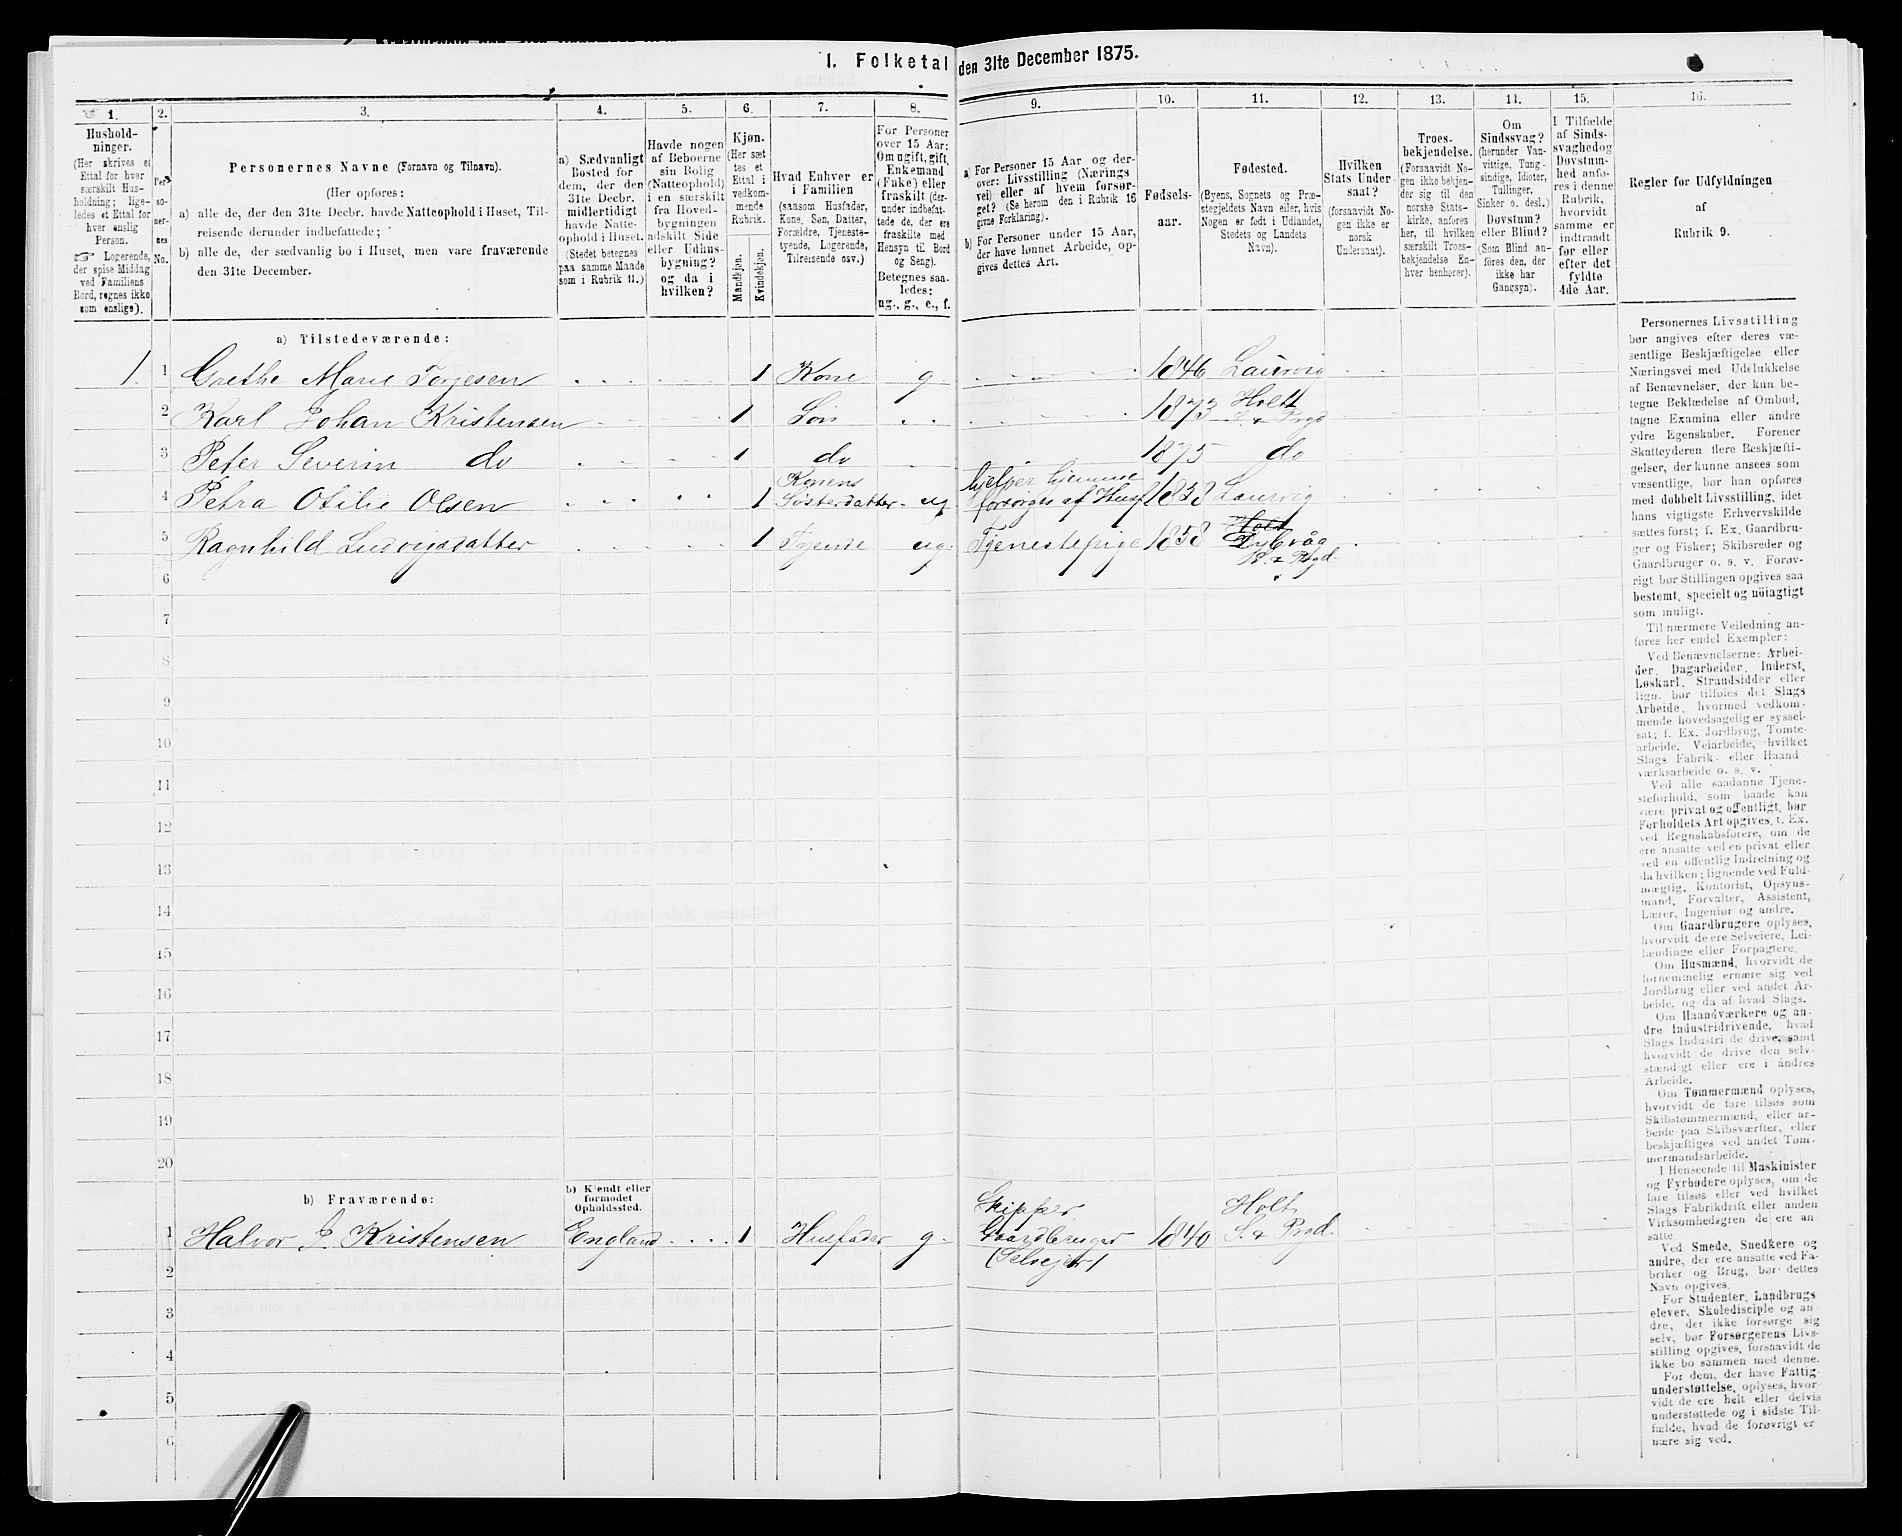 I. Folketal den 31te December 1875.
1. 2. 3. 4. 5. 6. 7. 8. 9. 10. 11. 12. 13. 14. 15. 16.
Hushold-
ninger.
(Her skrives et
Ettal for hver
særskilt Hus-
holdning; lige-
ledes et Ettal for
hver enslig
Person.
☞ Logerende,
der spise Middag
ved Familiens
Bord, regnes ikke
som enslige).
Per-
so-
ner-
nes
No.
Personernes Navne (Fornavn og Tilnavn).
(Her opføres:
a) alle de, der den 31te Decbr. havde Natteophold i Huset, Til-
reisende derunder indbefattede;
b) alle de, der sædvanlig bo i Huset, men vare fraværende
den 31te December.
a) Sædvanligt
Bosted for
dem, der den
31te Decbr.
midlertidigt
havde Natte-
ophold i Huset.
(Stedet betegnes
paa samme Maade
som i Rubrik 11.)
Havde nogen
af Beboerne
sin Bolig
(Natteophold)
i en særskilt
fra Hoved-
bygningen
adskilt Side
eller Udhus-
bygning?
og da i
hvilken?
Kjøn.
(Her sæt
tes et
Ettal i
vedkom-
mende
Rubrik.
Mandkjøn.
Kvindekjøn.
Hvad Enhver er
i Familien
(saasom Husfader,
Kone, Søn, Datter,
Forældre, Tjeneste-
tyende, Logerende,
Tilreisende osv.)
For Personer
over 15 Aar:
Om ugift, gift,
Enkemand
(Enke) eller
fraskilt (der-
under indbefat-
tede de, der ere
fraskilte med
Hensyn til Bord
og Seng).
Betegnes saa-
ledes:
ug., g., e., f.
a) For Personer 15 Aar og der-
over: Livsstilling (Nærings
vei) eller af hvem forsør-
get? (Se herom den i Rubrik 16
givne Forklaring).
b) For Personer under 15 Aar,
der have lønnet Arbeide, op-
gives dettes Art.
Fødsels-
aar.
Fødested.
(Byens, Sognets og Præ-
stegjeldets Navn eller, hvis
Nogen er født i Udlandet,
Stedets og Landets
Navn).
Hvilken
Stats Under-
saat?
(forsaavidt No-
gen ikke er
norsk
Undersaat).
Troes-
bekjendelse.
(Forsaavidt No-
gen ikke bekjen-
der sig til den
norske Stats-
kirke, anføres
her, til hvilken
særskilt Troes-
bekjendelse En-
hver henhører).
Om
Sindssvag?
(herunder Van-
vittige, Tung-
sindige, Idioter,
Tullinger,
Sinker o. desl.)
Døvstum?
eller Blind?
(Som Blind an-
føres den, der
ikke har
Gangsyn).
I Tilfælde
af Sinds-
svaghed og
Døvstum-
hed anfø-
res i denne
Rubrik,
hvorvidt
samme er
indtraadt
før eller
efter det
fyldte
4de Aar.
Regler for Udfyldningen
af
Rubrik 9.
a) Tilstedeværende:
1. 1 Grethe Marie Torjesen 1 Kone g. 1846 Laurvig
2 Karl Johan Kristensen 1 Søn 1873 Holt S. & Prgd
3 Peter Severin do 1 do 1875 do
4 Petra Otilie Olsen 1 Konens Søsterdatter ug hjelper hjemme forsørges af Husf. 1858 Laurvig
5 Ragnhild Ludvigsdatter 1 Tjende ug. Tjenestepige 1858 Holt Dybvåg S. & Prgd.
6
7
8
9
10
11
12
13
14
15
16
17
18
19
20
b) Fraværende:
b) Kjendt eller
formodet
Opholdssted.
1 Halvor J. Kristensen England 1 Husfader g. Skipper Gaardbruger (Selvejer) 1840 Holt S. & Prgd.
2
3
4
5
6
Personernes Livsstilling
bør angives efter deres væ-
sentlige Beskjæftigelse eller
Næringsvei med Udelukkelse
af Benævnelser, der kun be-
tegne Beklædelse af Ombud,
tagne Examina eller andre
ydre Egenskaber. Forener
Skatteyderen flere Beskjæfti-
gelser, der kunne ansees som
væsentlige, bør han opføres
med dobbelt Livsstilling, idet
hans vigtigste Erhvervskilde
sættes først; f. Ex. Gaardbru-
ger og Fisker; Skibsreder og
Gaardbruger o. s. v. Forøv-
rigt bør Stillingen opgives saa
bestemt, specielt og nöiagtigt
som muligt.
Til nærmere Veiledning an-
føres her endel Exempler:
Ved Benævnelserne: Arbei-
der, Dagarbeider, Inderst,
Løskarl, Strandsidder eller
lign. bør tilføies det Slags
Arbeide, hvormed vedkom-
mende hovedsagelig er syssel-
sat; f. Ex. Jordbrug, Tomte-
arbeide, Veiarbeide, hvilket
Slags Fabrik- eller Haand
værksarbeide o. s. v.
Ved alle saadanne Tjene-
steforhold, som baade kan
være privat og offentligt, bør
Forholdets Art opgives, t. Ex.
ved Regnskabsførere, om de
ere ansatte ved en privat eller
ved en offentlig Indretning og
da hvilken; lignende ved Fuld-
mægtig, Kontorist, Opsyns-
mand, Forvalter, Assistent,
Lærer, Ingeniør og andre.
Om Gaardbrugere oplyses,
hvorvidt de ere Selveiere, Lei-
lændinge eller Forpagtere.
Om Husmænd, hvorvidt de
fornemmelig ernære sig ved
Jordbrug eller ved andet Ar-
beide, og da af hvad Slags.
Om Haandværkere og an-
dre Industridrivende, hvad
Slags Industri de drive, samt
hvorvidt de drive den selv-
stændigt eller ere i ándres
Arbeide.
Om Tømmermænd oplyses,
hvorvidt de fare tilsøs som
Skibstømmermænd, eller ar-
beide paa Skibsværfter, eller
beskjæftiges ved andet Tøm-
mermandsarbeide.
I Henseende til Maskinister
og Fyrbødere oplyses, om de
fare tilsøs eller ved hvilket
Slags Fabrikdrift eller anden
Virksomhedsgren de ere an-
satte.
Ved Smede, Snedkere og
andre, der ere ansatte ved Fa-
briker og Brug, bør dettes
Navn opgives.
For Studenter, Landbrugs
elever, Skoledisciple og an-
dre, der ikke forsørge sig
selv, bør Forsørgerens Livs-
stilling opgives, forsaavidt de
ikke bo sammen med denne.
For dem, der have Fattig
understøttelse, oplyses, hvor-
vidt de ere helt eller delvis
understøttede og i sidste Til-
fælde, hvad de forøvrigt er
nære sig ved.